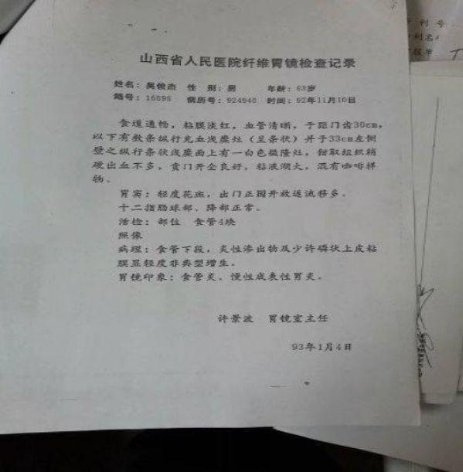 山西省人民医院纤维胃镜检查记录
姓名：吴俊杰 性 别：男 年龄：63岁
镜号：16595 病历号：924940 时间：92年11月10日
食道通畅，粘膜淡红，血管清晰，于距门齿30cm，
以下有数条纵行充血浅糜灶（呈条状）并于33cm左侧
壁之纵行条状浅糜面上有一白色微隆灶，钳取组织稍
硬出血不多，贲门开全良好，粘液湖大，混有咖啡样
物。
胃窦：轻度花斑，出门正圆开放返流移多。
十二指肠球部、降部正常。
活检：部位 食管4块
照像
病理：食管下段，炎性渗出物及少许磷状上皮粘
膜显轻度非典型增生。
胃镜印象：食管炎、慢性成表性胃炎。
许景波 胃镜室主任
93年1月4日